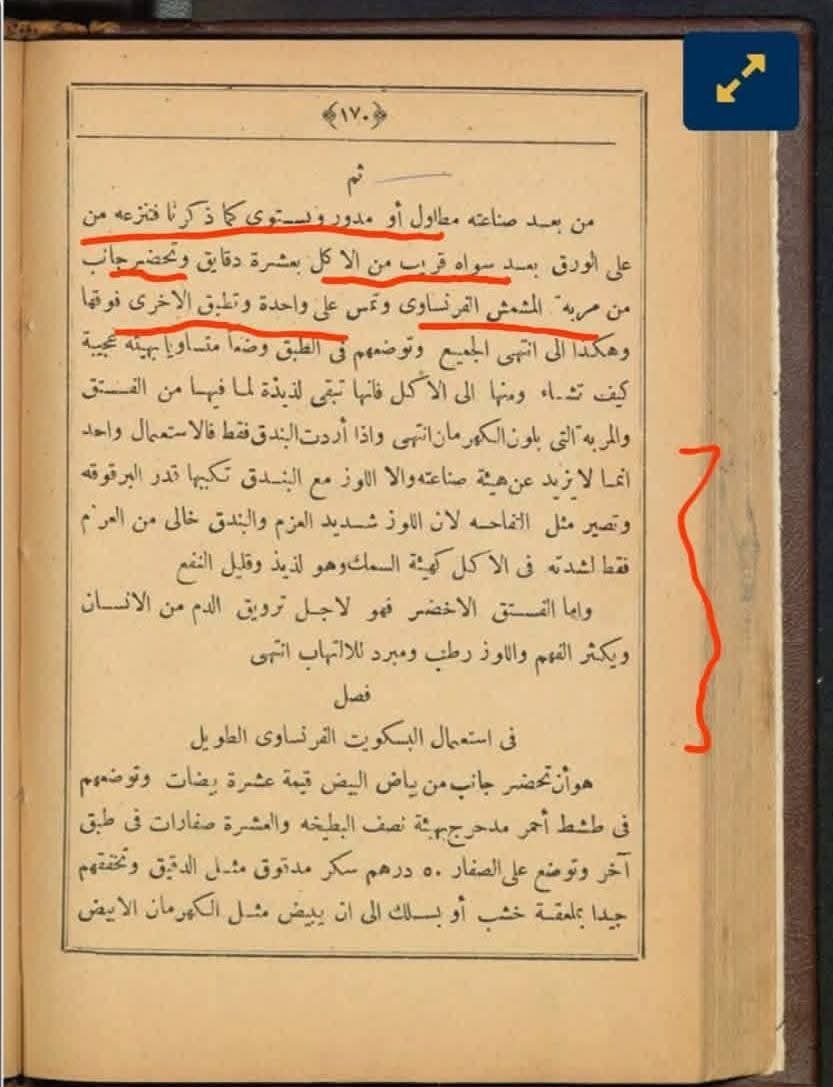 ﴿١٧٠﴾
ثم
من بعد صناعته مطاول أو مدور ويستوى كما ذكرنا فتنزعه من
على الورق بعد سواه قريب من الاكل بعشرة دقايق وتحضر جانب
من مربة المشمش الفرنساوى وتمس على واحدة وتطبق الاخرى فوقها
وهكذا الى انتهى الجميع وتوضعهم فى الطبق وضعا متساويا بهيئة عجيبة
كيف تشاء ومنها الى الأكل فانها تبقى لذيذة لما فيها من الفستق
والمربة التى بلون الكهرمان انتهى واذا أردت البندق فقط فالاستعمال واحد
انما لا يزيد عن هيئة صناعته والا اللوز مع البندق تكبها قدر البرقوقه
وتصير مثل التفاحه لان اللوز شديد العزم والبندق خالى من العزم
فقط لشدته فى الاكل كهيئة السمك وهو لذيذ وقليل النفع
واما الفستق الاخضر فهو لاجل ترويق الدم من الانسان
ويكثر الفهم واللوز رطب ومبرد للالتهاب انتهى
فصل
فى استعمال البسكويت الفرنساوى الطويل
هو أن تحضر جانب من بياض البيض قيمة عشرة بيضات وتوضعهم
فى طشط أحمر مدحرج بهيئة نصف البطيخه والعشرة صفارات فى طبق
آخر وتوضع على الصفار ٥٠ درهم سكر مدقوق مثل الدقيق وتخفقهم
جيدا بملعقة خشب أو بسلك الى ان يبيض مثل الكهرمان الابيض